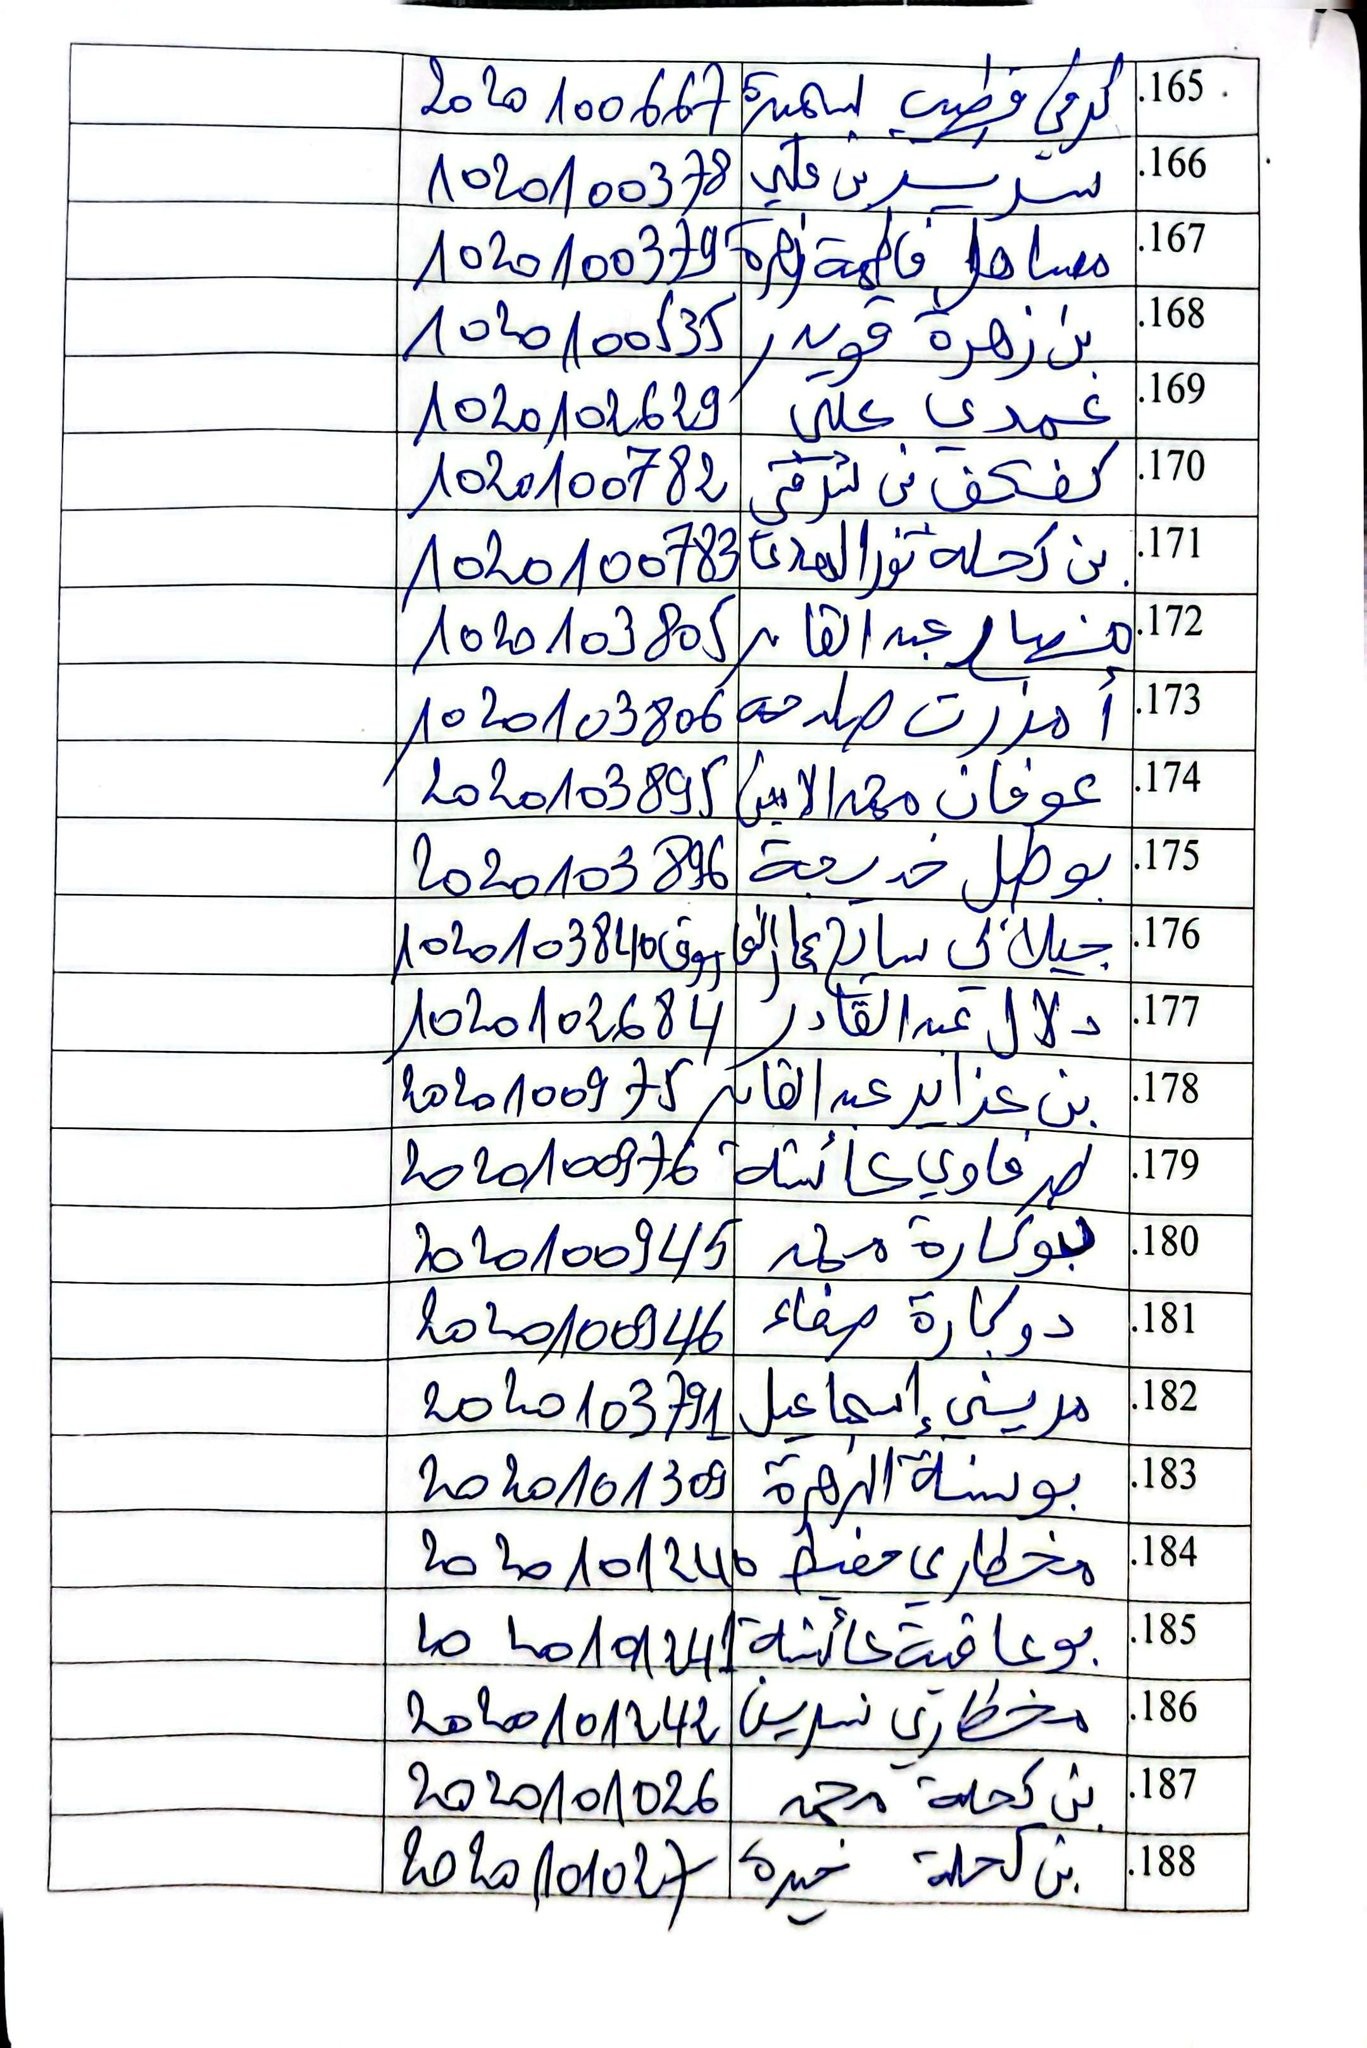 165. كرفي قطيب سميرة 2020100667
166. بن علي 1020100378
167. مساهل فاطمة زهرة 1020100379
168. بن زهرة قويدر 1020100535
169. غمدي علي 1020102629
170. 1020100782
171. بن كحلة نور الهدى 1020100783
172. منهار عبد القادر 1020103805
173. 1020103806
174. عوفان محمد الامين 2020103895
175. بوطل خديجة 2020103896
176. جيلالي سايح عمار الفاروق 1020103840
177. دلال عبد القادر 1020102684
178. بن عزاير عبد القادر 2020100975
179. صرفاوي عائشة 2020100976
180. بوكارة محمد 2020100945
181. دوكارة صفاء 2020100946
182. مريني إسماعيل 2020103791
183. بوسنة الزهرة 2020101309
184. مخطاري حفيظ 2020101240
185. بوعافية عائشة 2020101241
186. مخطاري نسرين 2020101242
187. بن كحلة محمد 2020101026
188. بن كحلة خيرة 2020101027